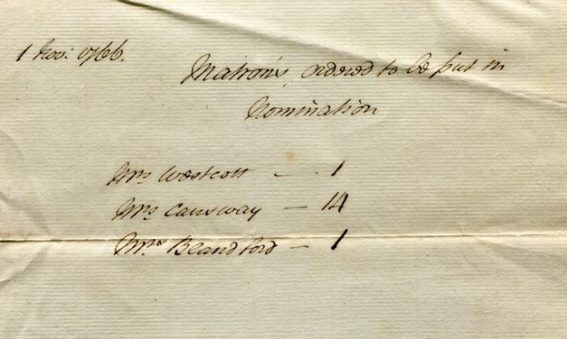 1 Nov: 1766.
Matrons ordered to be put in
Nomination
Mrs Westcott — 1
Mrs Causway — 14
Mrs Blandford — 1